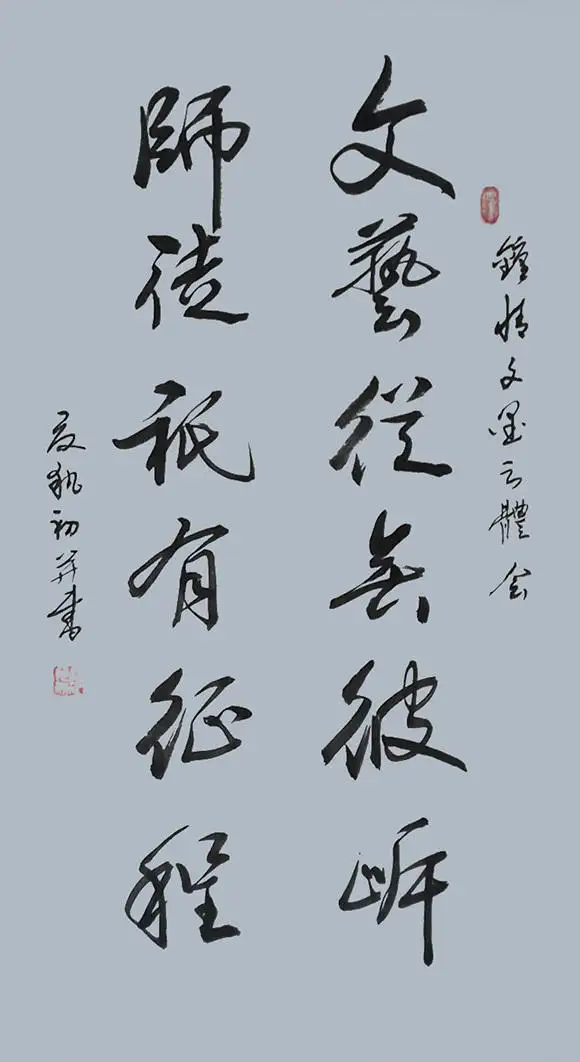 鍾情文墨之體會
文藝從無彼岸
師徒祇有征程
并書